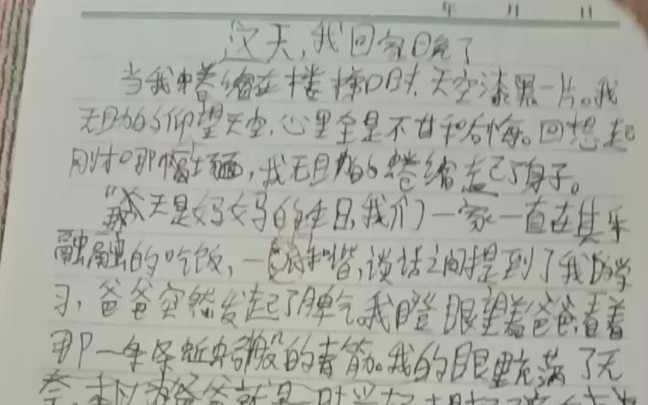 年 月 日
这天,我回家晚了
当我蜷缩在楼梯口时,天空漆黑一片。我
无助的仰望天空,心里全是不甘和后悔。回想起
刚才那幅场面,我无助的蜷缩起了身子。
那天是妈妈的生日,我们一家一直在其乐
融融的吃饭,一 谈话之间提到了我的学
习,爸爸突然发起了脾气。我瞪眼望着爸爸,看着
那一条条蚯蚓般的青筋。我的眼里充满了无
爸爸就是一时